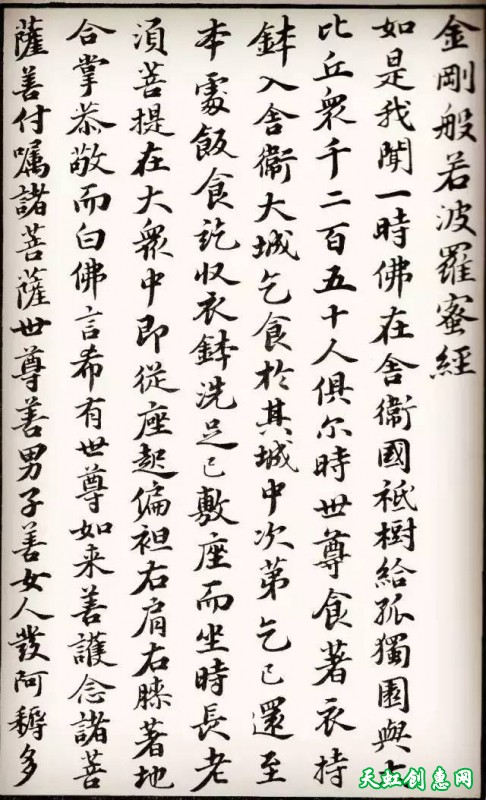 金剛般若波羅蜜經
如是我聞一時佛在舍衞國祇樹給孤獨園與大
比丘眾千二百五十人俱尔時世尊食著衣持
鉢入舍衞大城乞食於其城中次第乞已還至
本處飯食訖収衣鉢洗足已敷座而坐時長老
須菩提在大眾中即從座起偏袒右肩右膝著地
合掌恭敬而白佛言希有世尊如来善護念諸菩
薩善付嘱諸菩薩世尊善男子善女人發阿耨多
天虹创惠网